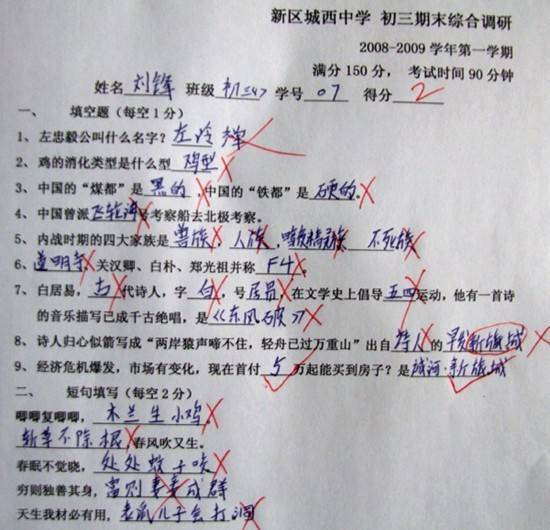 新区城西中学 初三期末综合调研
2008-2009 学年第一学期
满分 150 分， 考试时间 90 分钟
姓名 刘锋 班级 初三<4> 学号 07 得分 2
一、 填空题（每空 1 分）
1、左忠毅公叫什么名字？左冷禅
2、鸡的消化类型是什么型 鸡型
3、中国的“煤都”是 黑的 ，中国的“铁都”是 硬的
4、中国曾派 飞轮海 号考察船去北极考察。
5、内战时期的四大家族是 兽族、人族、暗夜精灵族 不死族
6、道明寺、关汉卿、白朴、郑光祖并称 F4 。
7、白居易， 古 代诗人，字 白 ，号 居易 ，在文学史上倡导 五四 运动，他有一首诗
的音乐描写已成千古绝唱，是 《东风破》
8、诗人归心似箭写成“两岸猿声啼不住，轻舟已过万重山”出自 诗人 的
9、经济危机爆发，市场有变化，现在首付 5 万起能买到房子？是 城河·新旗城
二、 短句填写（每空 2 分）
唧唧复唧唧， 木兰生小鸡
斩草不除根 ，春风吹又生。
春眠不觉晓， 处处蚊子咬
穷则独善其身， 富则妻妾成群
天生我材必有用， 老鼠儿子会打洞